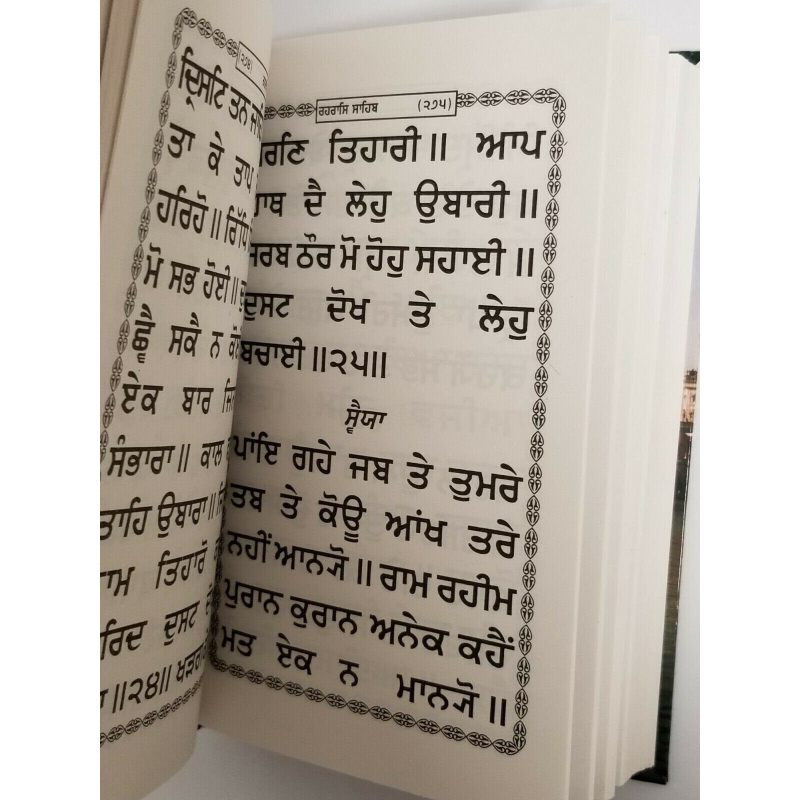 (੨੭੪)
ਦ੍ਰਿਸਟਿ ਤਨ
ਤਾ ਕੇ ਤਾਪ
ਹਰਿਹੋ ॥ ਰਿੱਧਿ
ਮੋ ਸਭ ਹੋਈ ॥
ਛ੍ਵੈ ਸਕੈ ਨ
ਏਕ ਬਾਰ
ਸੰਭਾਰਾ ॥ ਕਾਲ
ਤਾਹਿ ਉਬਾਰਾ ॥
ਤਿਹਾਰੋ
ਦੁਸਟ
॥੨੪॥
ਰਹਰਾਸਿ ਸਾਹਿਬ (੨੭੫)
ਤਿਹਾਰੀ ॥ ਆਪ
ਦੈ ਲੇਹੁ ਉਬਾਰੀ ॥
ਠੌਰ ਮੋ ਹੋਹੁ ਸਹਾਈ ॥
ਦੁਸਟ ਦੋਖ ਤੇ ਲੇਹੁ
ਬਚਾਈ ॥੨੫॥
ਸ੍ਵੈਯਾ
ਪਾਂਇ ਗਹੇ ਜਬ ਤੇ ਤੁਮਰੇ
ਤਬ ਤੇ ਕੋਊ ਆਂਖ ਤਰੇ
ਨਹੀਂ ਆਨ੍ਯੋ ॥ ਰਾਮ ਰਹੀਮ
ਪੁਰਾਨ ਕੁਰਾਨ ਅਨੇਕ ਕਹੈਂ
ਮਤ ਏਕ ਨ ਮਾਨ੍ਯੋ ॥